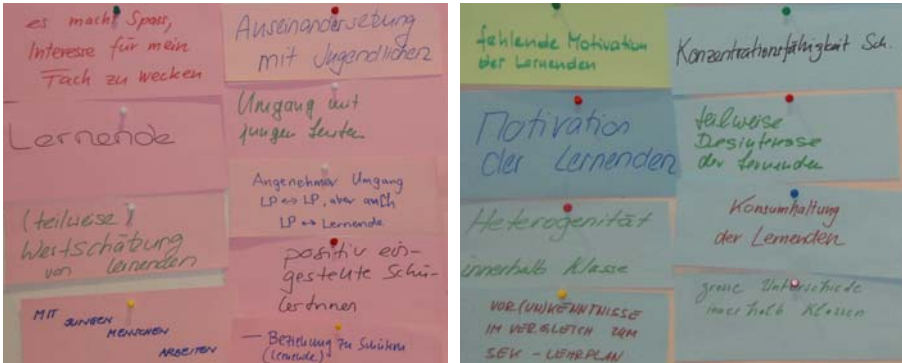 es macht Spass,
Interesse für mein
Fach zu wecken
Lernende
(teilweise)
Wertschätzung
von Lernenden
MIT
JUNGEN
MENSCHEN
ARBEITEN
Auseinandersetzung
mit Jugendlichen
Umgang mit
jungen Leuten
Angenehmer Umgang
LP ↔ LP, aber auch
LP ↔ Lernende
positiv ein-
gestellte Schü-
lerInnen
— Beziehung zu Schülern
(Lernende)
fehlende Motivation
der Lernenden
Motivation
der Lernenden
Heterogenität
innerhalb Klasse
VOR(UN)KENNTNISSE
IM VERGLEICH ZUM
SEK - LEHRPLAN
Konzentrationsfähigkeit Sch.
teilweise
Desinteresse
der Lernenden
Konsumhaltung
der Lernenden
grosse Unterschiede
innerhalb Klassen